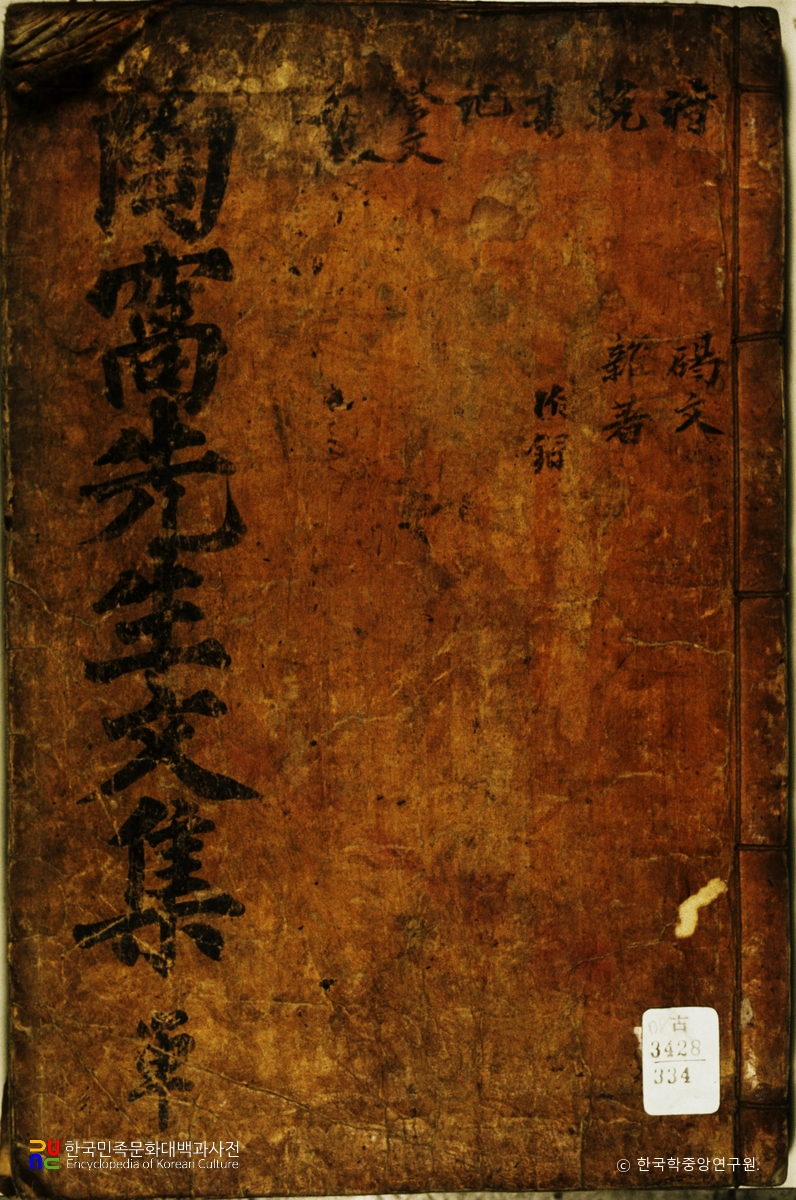 詩
輓
書
記
祭文
碣文
雜著
附錄
陶窩先生文集 單
古
3428
334
한국민족문화대백과사전
Encyclopedia of Korean Culture
© 한국학중앙연구원.